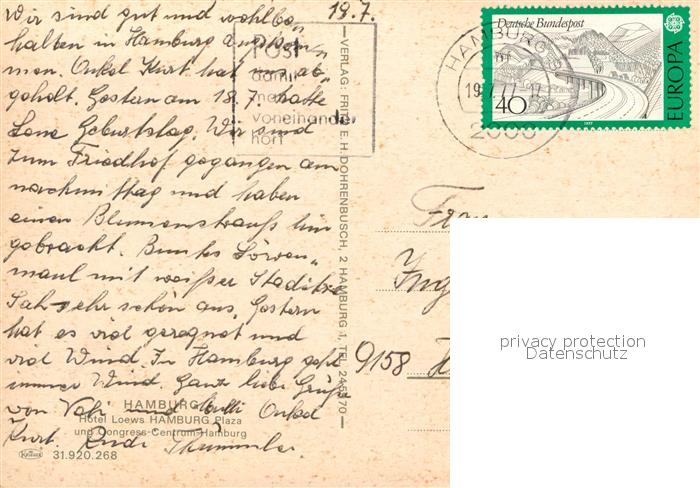 19.7.
Wir sind gut und wohlbe„
halten in Hamburg angekom„
men. Onkel Kurt hat uns ab„
geholt. Gestern am 18.7. hatte
Lene Geburtstag. Wir sind
zum Friedhof gegangen am
nachmittag und haben
einen Blumenstrauß hin
gebracht. Buntes Löwen„
maul mit weißer Statice
Sah sehr schön aus. Gestern
hat es viel geregnet und
viel Wind. In Hamburg geht
immer Wind. Ganz liebe Grüße
von Vati und Mutti Onkel
Kurt.
HAMBURG
Hotel Loews HAMBURG Plaza
und Congress-Centrum Hamburg
Krüger 31.920.268
Post
damit
man
voneinander
hört
VERLAG: FRITZ E. H. DOHRENBUSCH, 2 HAMBURG 1, TEL.
HAMBURG
2000
Deutsche Bundespost
40
1977
EUROPA
CEPT
Frau
9158
privacy protection
Datenschutz